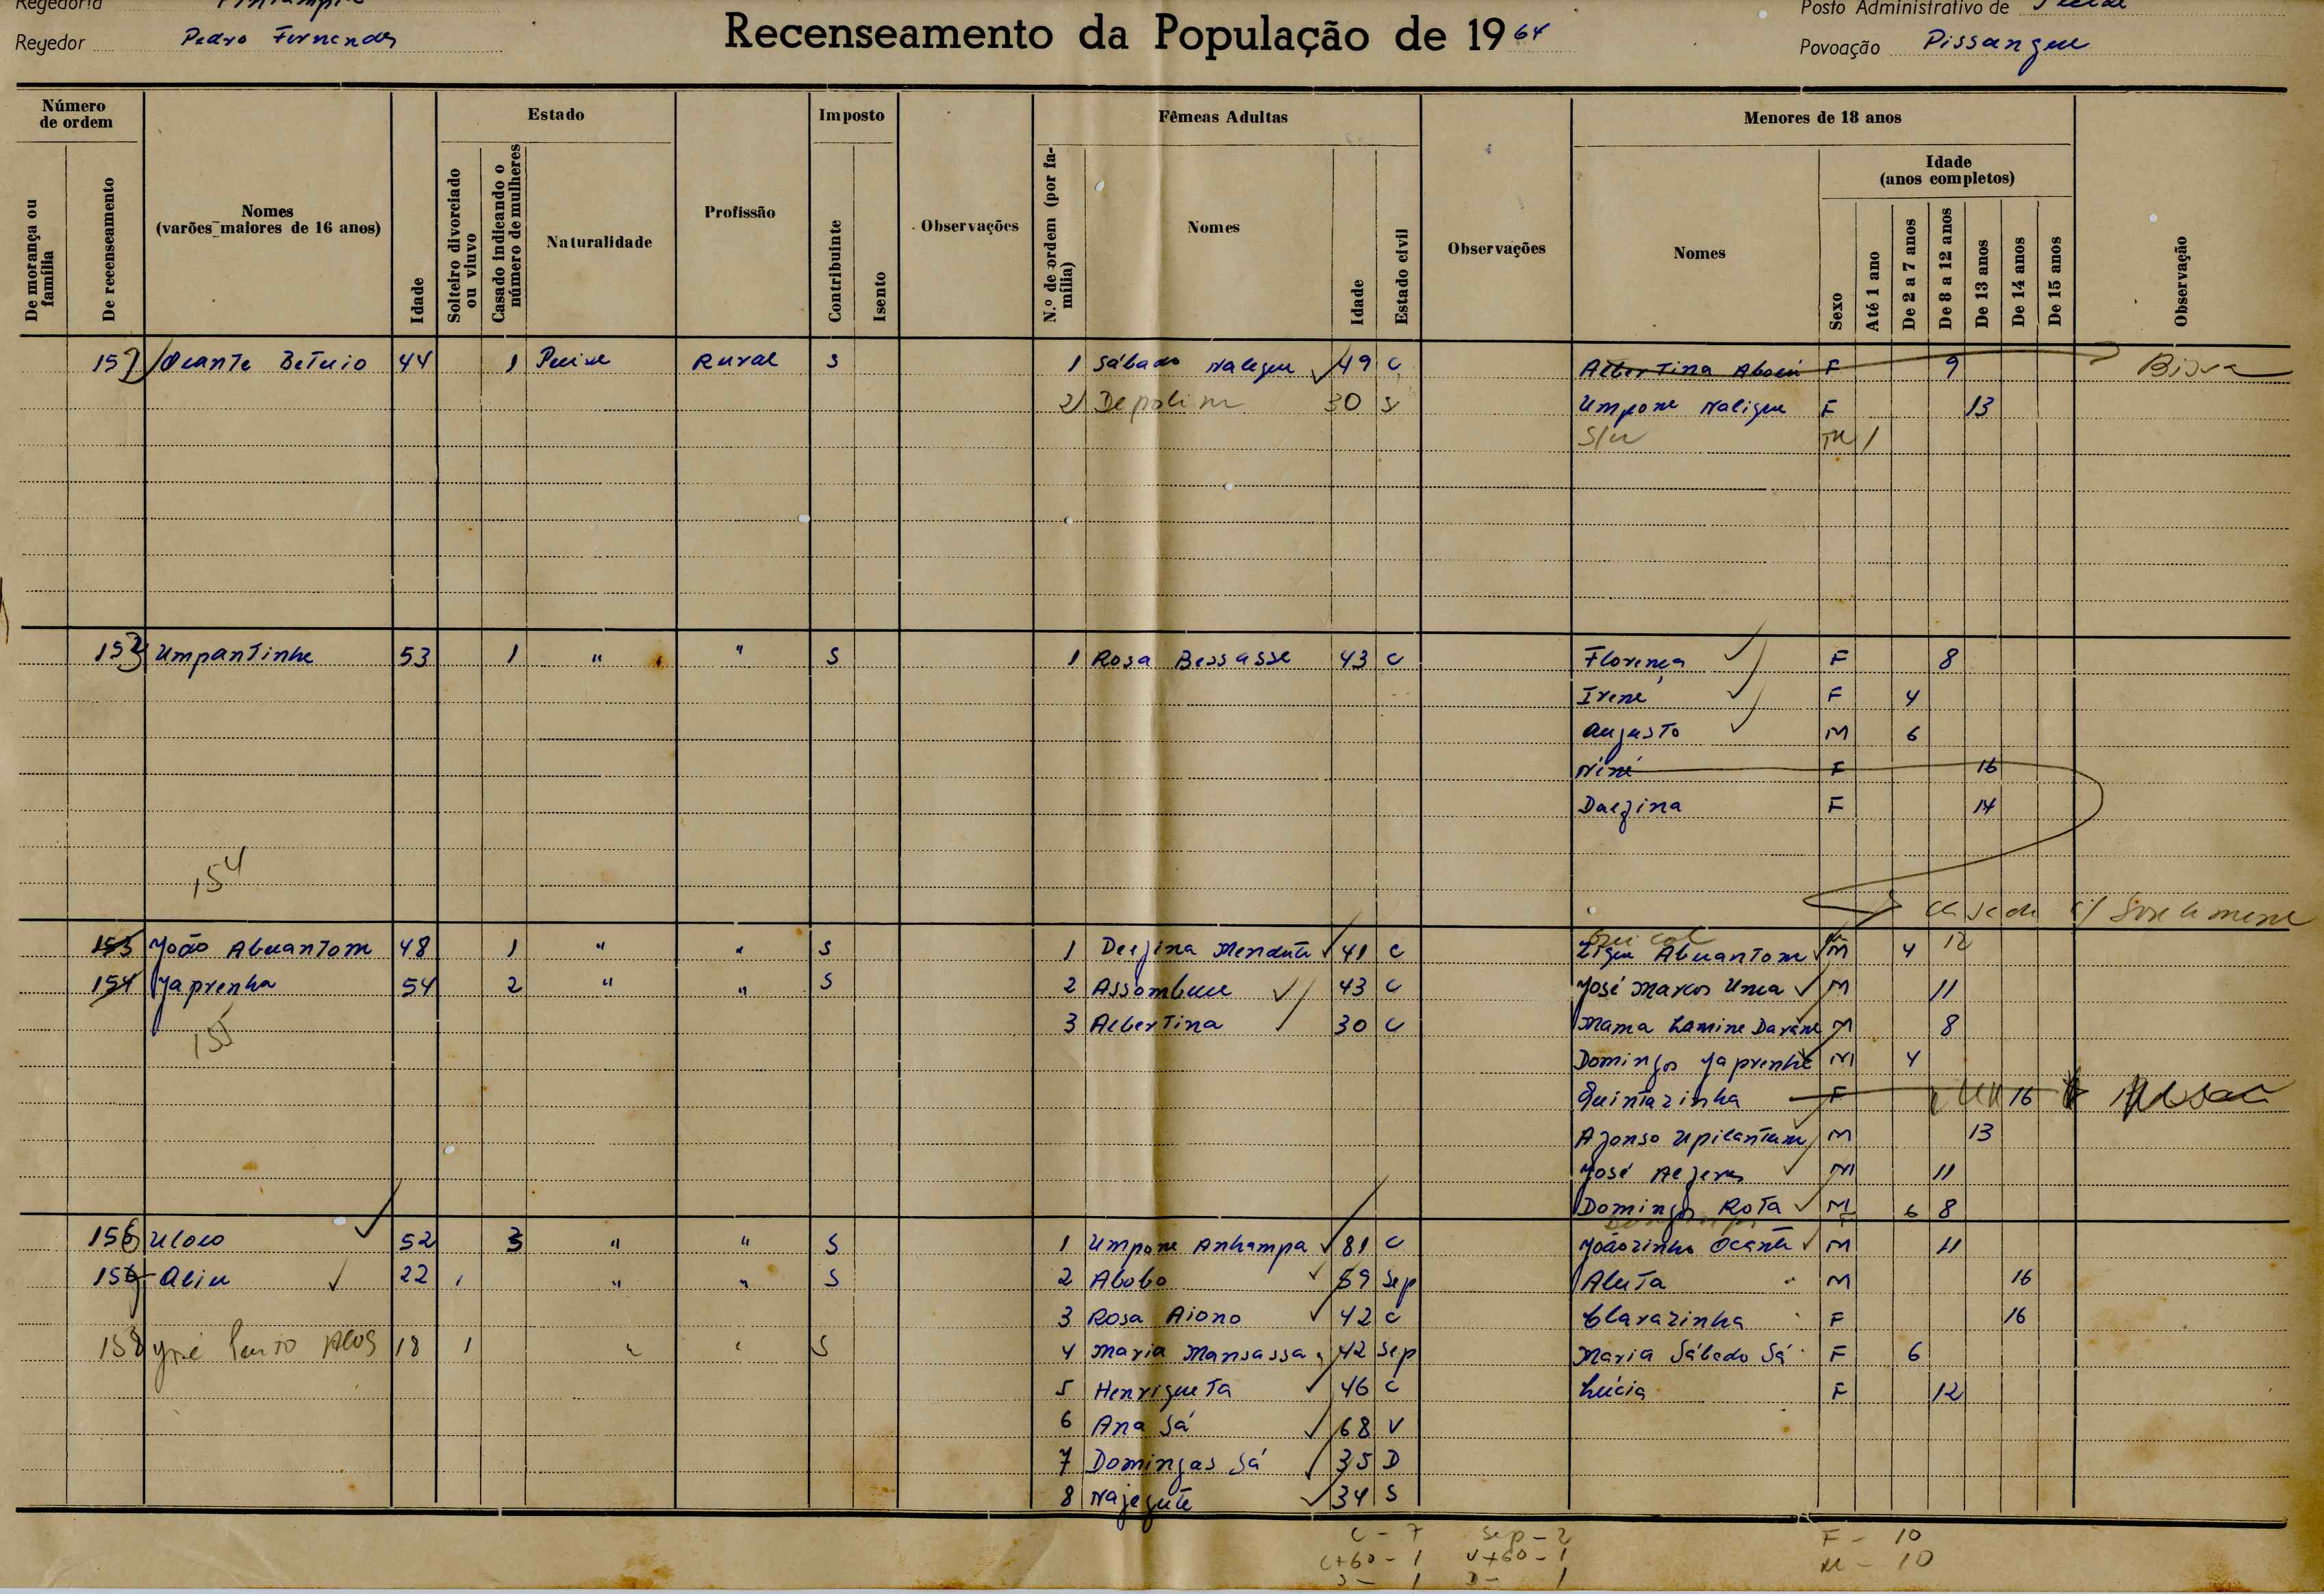 Regedoria
Posto Administrativo de
Regedor Pedro Fernandes
Recenseamento da População de 1964
Povoação Pissangue
Número de ordem
Estado
Imposto
Fêmeas Adultas
Menores de 18 anos
De morança ou família
De recenseamento
Nomes (varões maiores de 16 anos)
Idade
Solteiro divorciado ou viuvo
Casado indicando o número de mulheres
Naturalidade
Profissão
Contribuinte
Isento
Observações
N.º de ordem (por família)
Nomes
Idade
Estado civil
Observações
Nomes
Sexo
Idade (anos completos)
Até 1 ano
De 2 a 7 anos
De 8 a 12 anos
De 13 anos
De 14 anos
De 15 anos
Observação
152 Ocante Betuio 44 1 Rural S 1 Sábado Nalegue 49 C Albertina F 9
2 Depolim 30 S Umpone Naligue F 13
S/n M 1
153 Umpantinhe 53 1 " " S 1 Rosa Bessasse 43 C Florença F 8
Irene F 4
Augusto M 6
Niné F 16
Dalfina F 14
154
153 João Abuantom 48 1 " " S 1 Delfina Mendute 41 C Abuantom M 4 12
154 Japrenha 54 2 " " S 2 Assombuce 43 C José Marcos Unca M 11
155
3 Albertina 30 C Mama Lamine Davane M 8
Domingos Japrenhe M 4
Quintazinha F 16
Afonso Upilantum M 13
José Alferes M 11
Domingos Rota M 6 8
156 Uloco 52 3 " " S 1 Umpone Anhampa 81 C Joãozinho Ocante M 11
157 Aliu 22 1 " " S 2 Abobo 59 Sep Aluta M 16
3 Rosa Aiono 42 C Clarazinha F 16
158 José Pinto Alves 18 1 " " S 4 Maria Mansassa 42 Sep Maria Sábado Sá F 6
5 Henriqueta 46 C Lúcia F 12
6 Ana Sá 68 V
7 Domingas Sá 35 D
8 Najegute 34 S
C - 7 Sep - 2 F - 10
C+60 - 1 V+60 - 1 M - 10
S - 1 D - 1